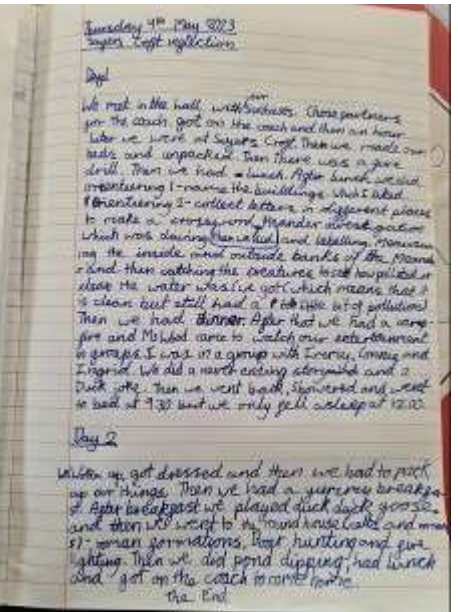 Thursday 4th May 2023
Sayers Croft reflection
Day1
our
We met in the hall, with suitcases. Chose partners
for the coach got on the coach and then an hour
later we were at Sayers Croft. Then we made our
beds and unpacked. Then there was a fire
drill. Then we had lunch. After lunch we did
orienteering 1-name the buildings which
orienteering 2- collect letters in different places
to make a crossword, Meander investigation
which was drawing and labelling, Measur
ing the inside and outside banks of the Meander
and then catching the creatures to see how polluted or
clean the water was (we got which means that it
is clean but still had a little bit of pollution)
Then we had dinner. After that we had a camp
fire and Ms Wood came to watch our entertainment
in groups. I was in a group with and
Ingrid. We did a never ending story and a
Duck joke. Then we went back, showered and went
to bed at 9:30 but we only fell asleep at 12:00.
Day 2
We woke up, got dressed and then we had to pack
up our things. Then we had a yummy breakfa
st. After breakfast we played duck duck goose
and then we went to the round house and
roman formations, hunting and fire
lighting. Then we did pond dipping, had lunch
and got on the coach to come home.
The End